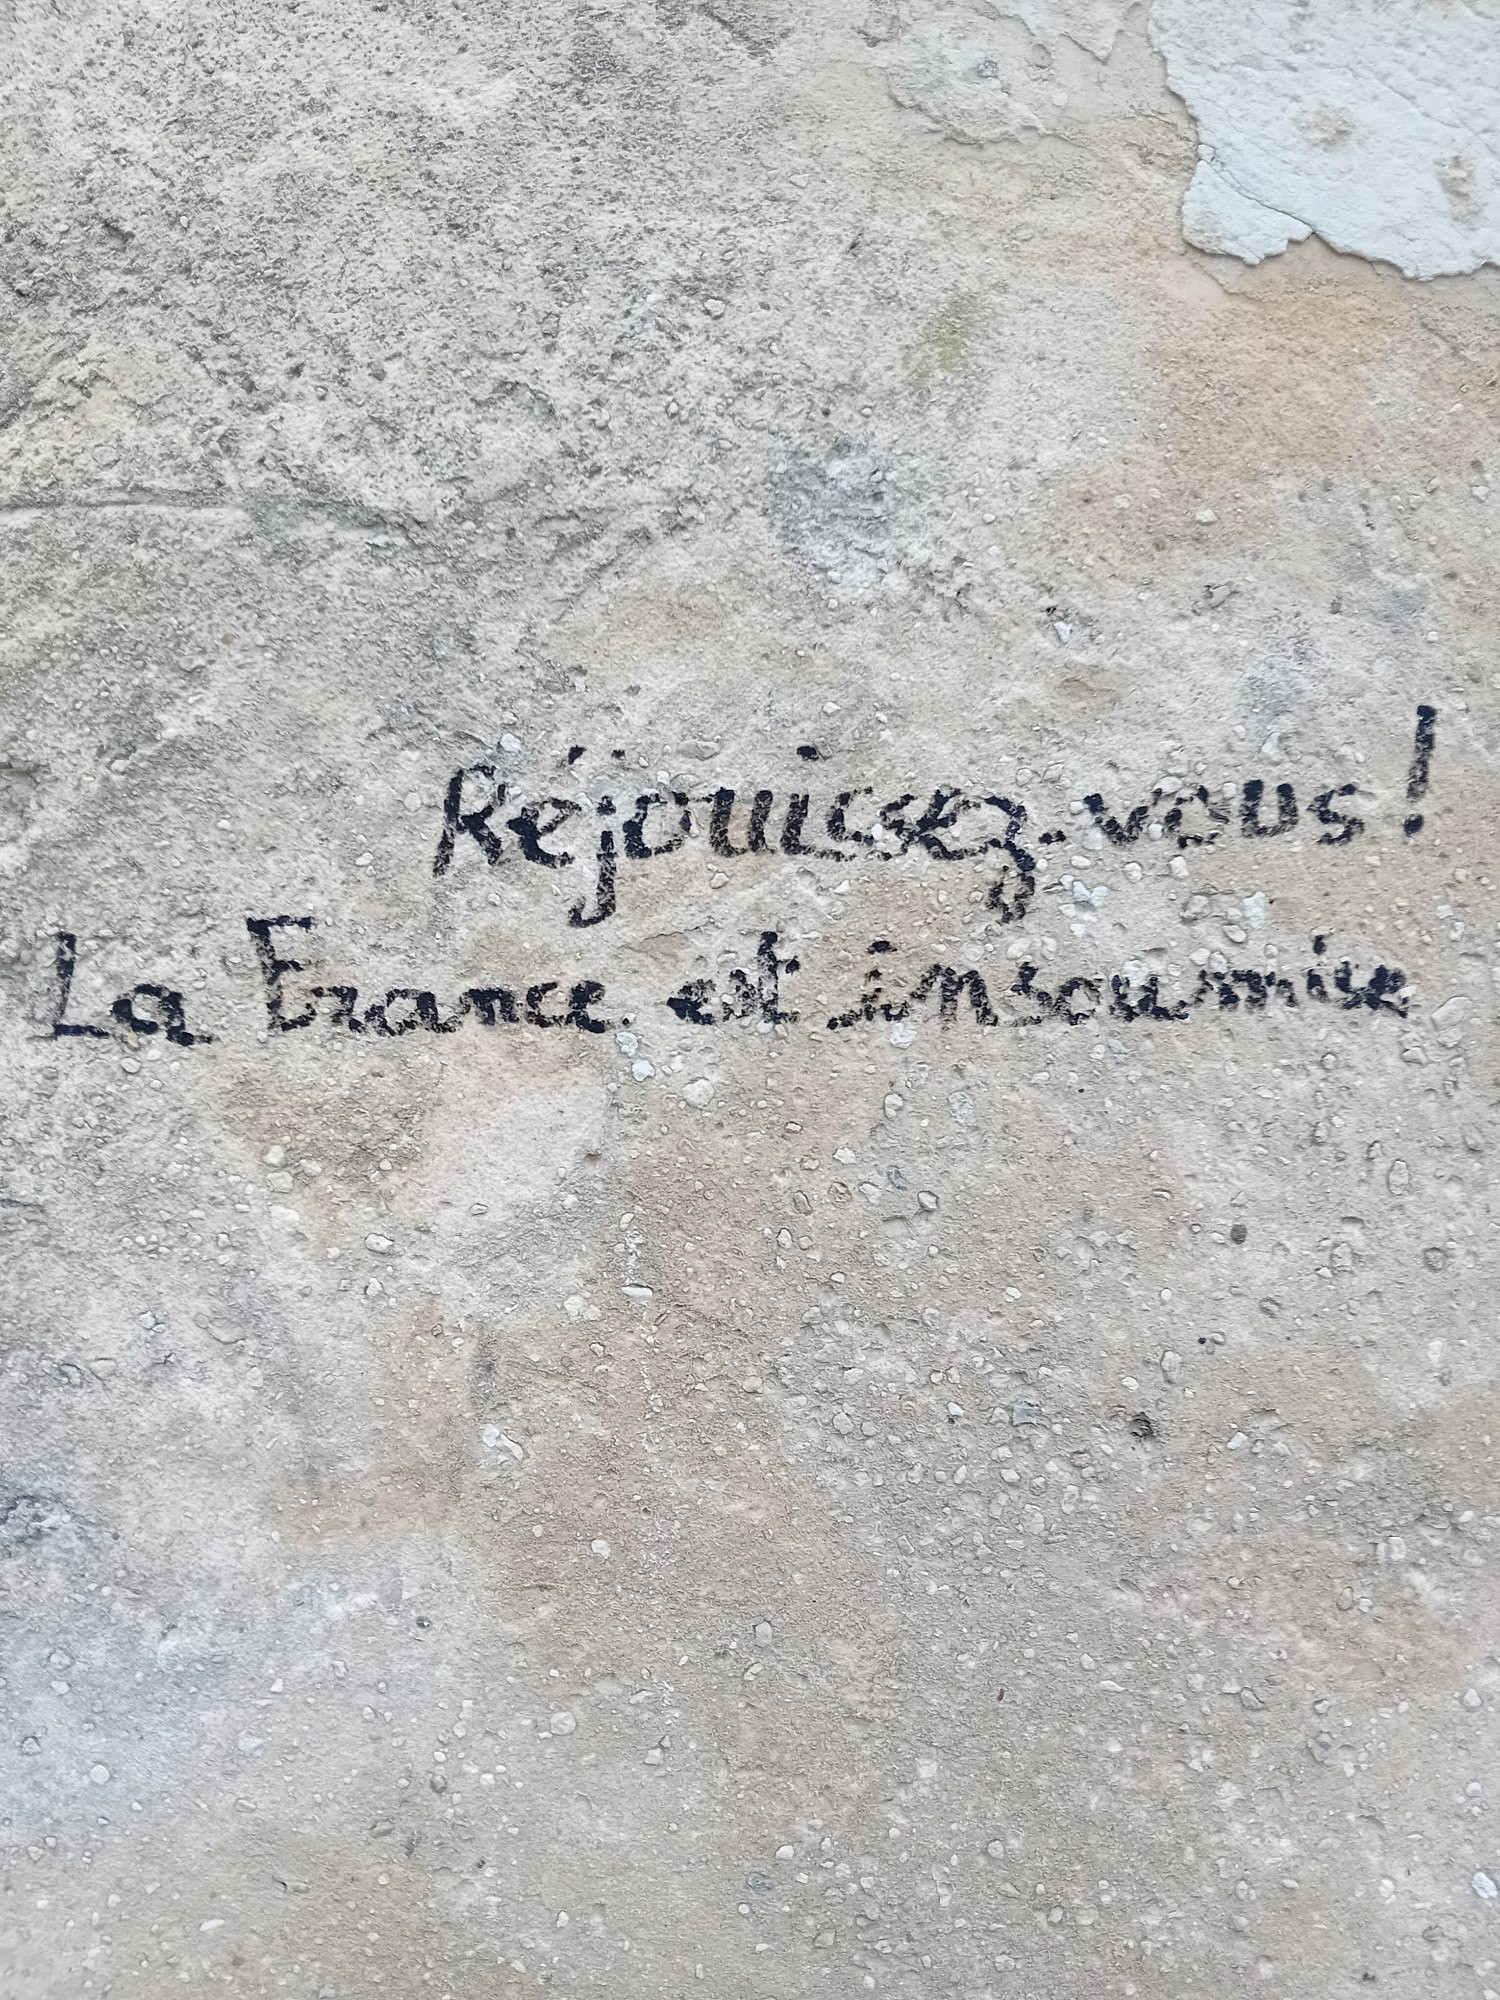 Réjouissez-vous !
La France est insoumise